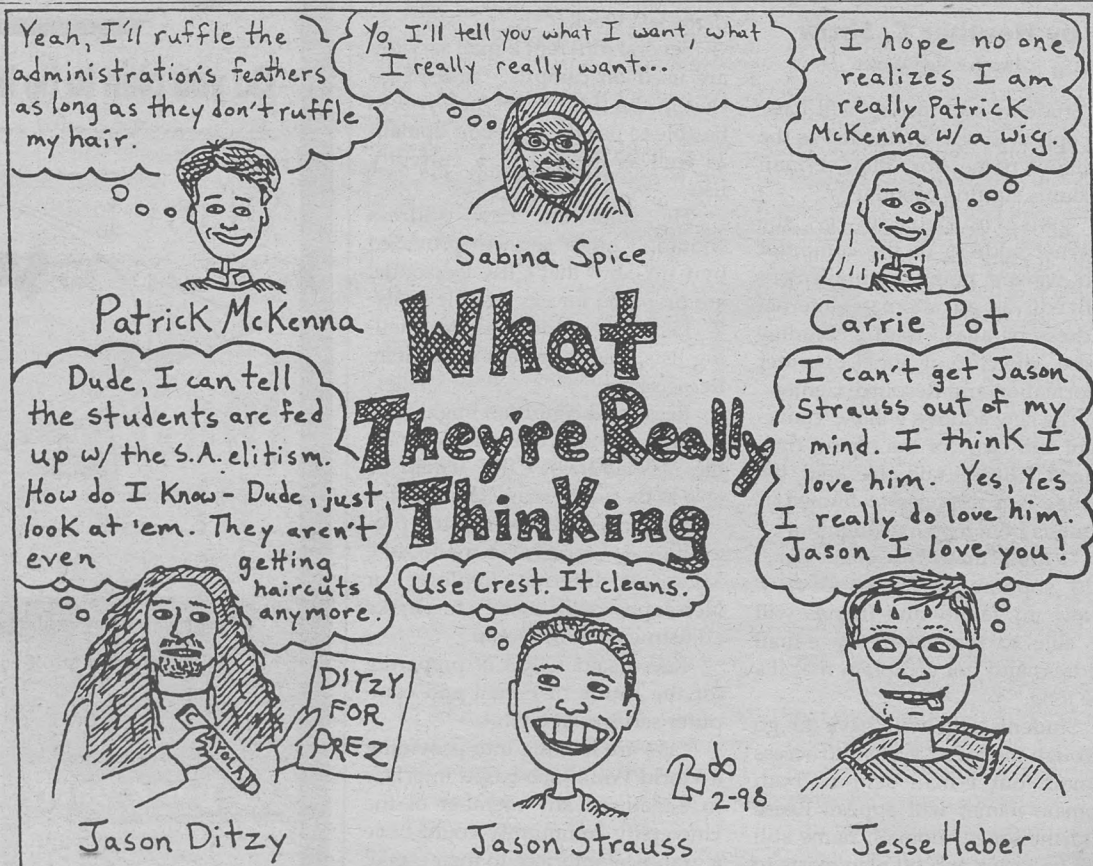 Yeah, I'll ruffle the
administration's feathers
as long as they don't ruffle
my hair.
Patrick McKenna
Yo, I'll tell you what I want, what
I really really want...
Sabina Spice
I hope no one
realizes I am
really Patrick
McKenna w/ a wig.
Carrie Pot
What
They're Really
Thinking
Dude, I can tell
the students are fed
up w/ the S.A. elitism.
How do I know - Dude, just
look at 'em. They aren't
even getting
haircuts
anymore.
CRAYOLA
DITZY
FOR
PREZ
Jason Ditzy
Use Crest. It cleans.
Jason Strauss
2-98
I can't get Jason
Strauss out of my
mind. I think I
love him. Yes, Yes
I really do love him.
Jason I love you!
Jesse Haber